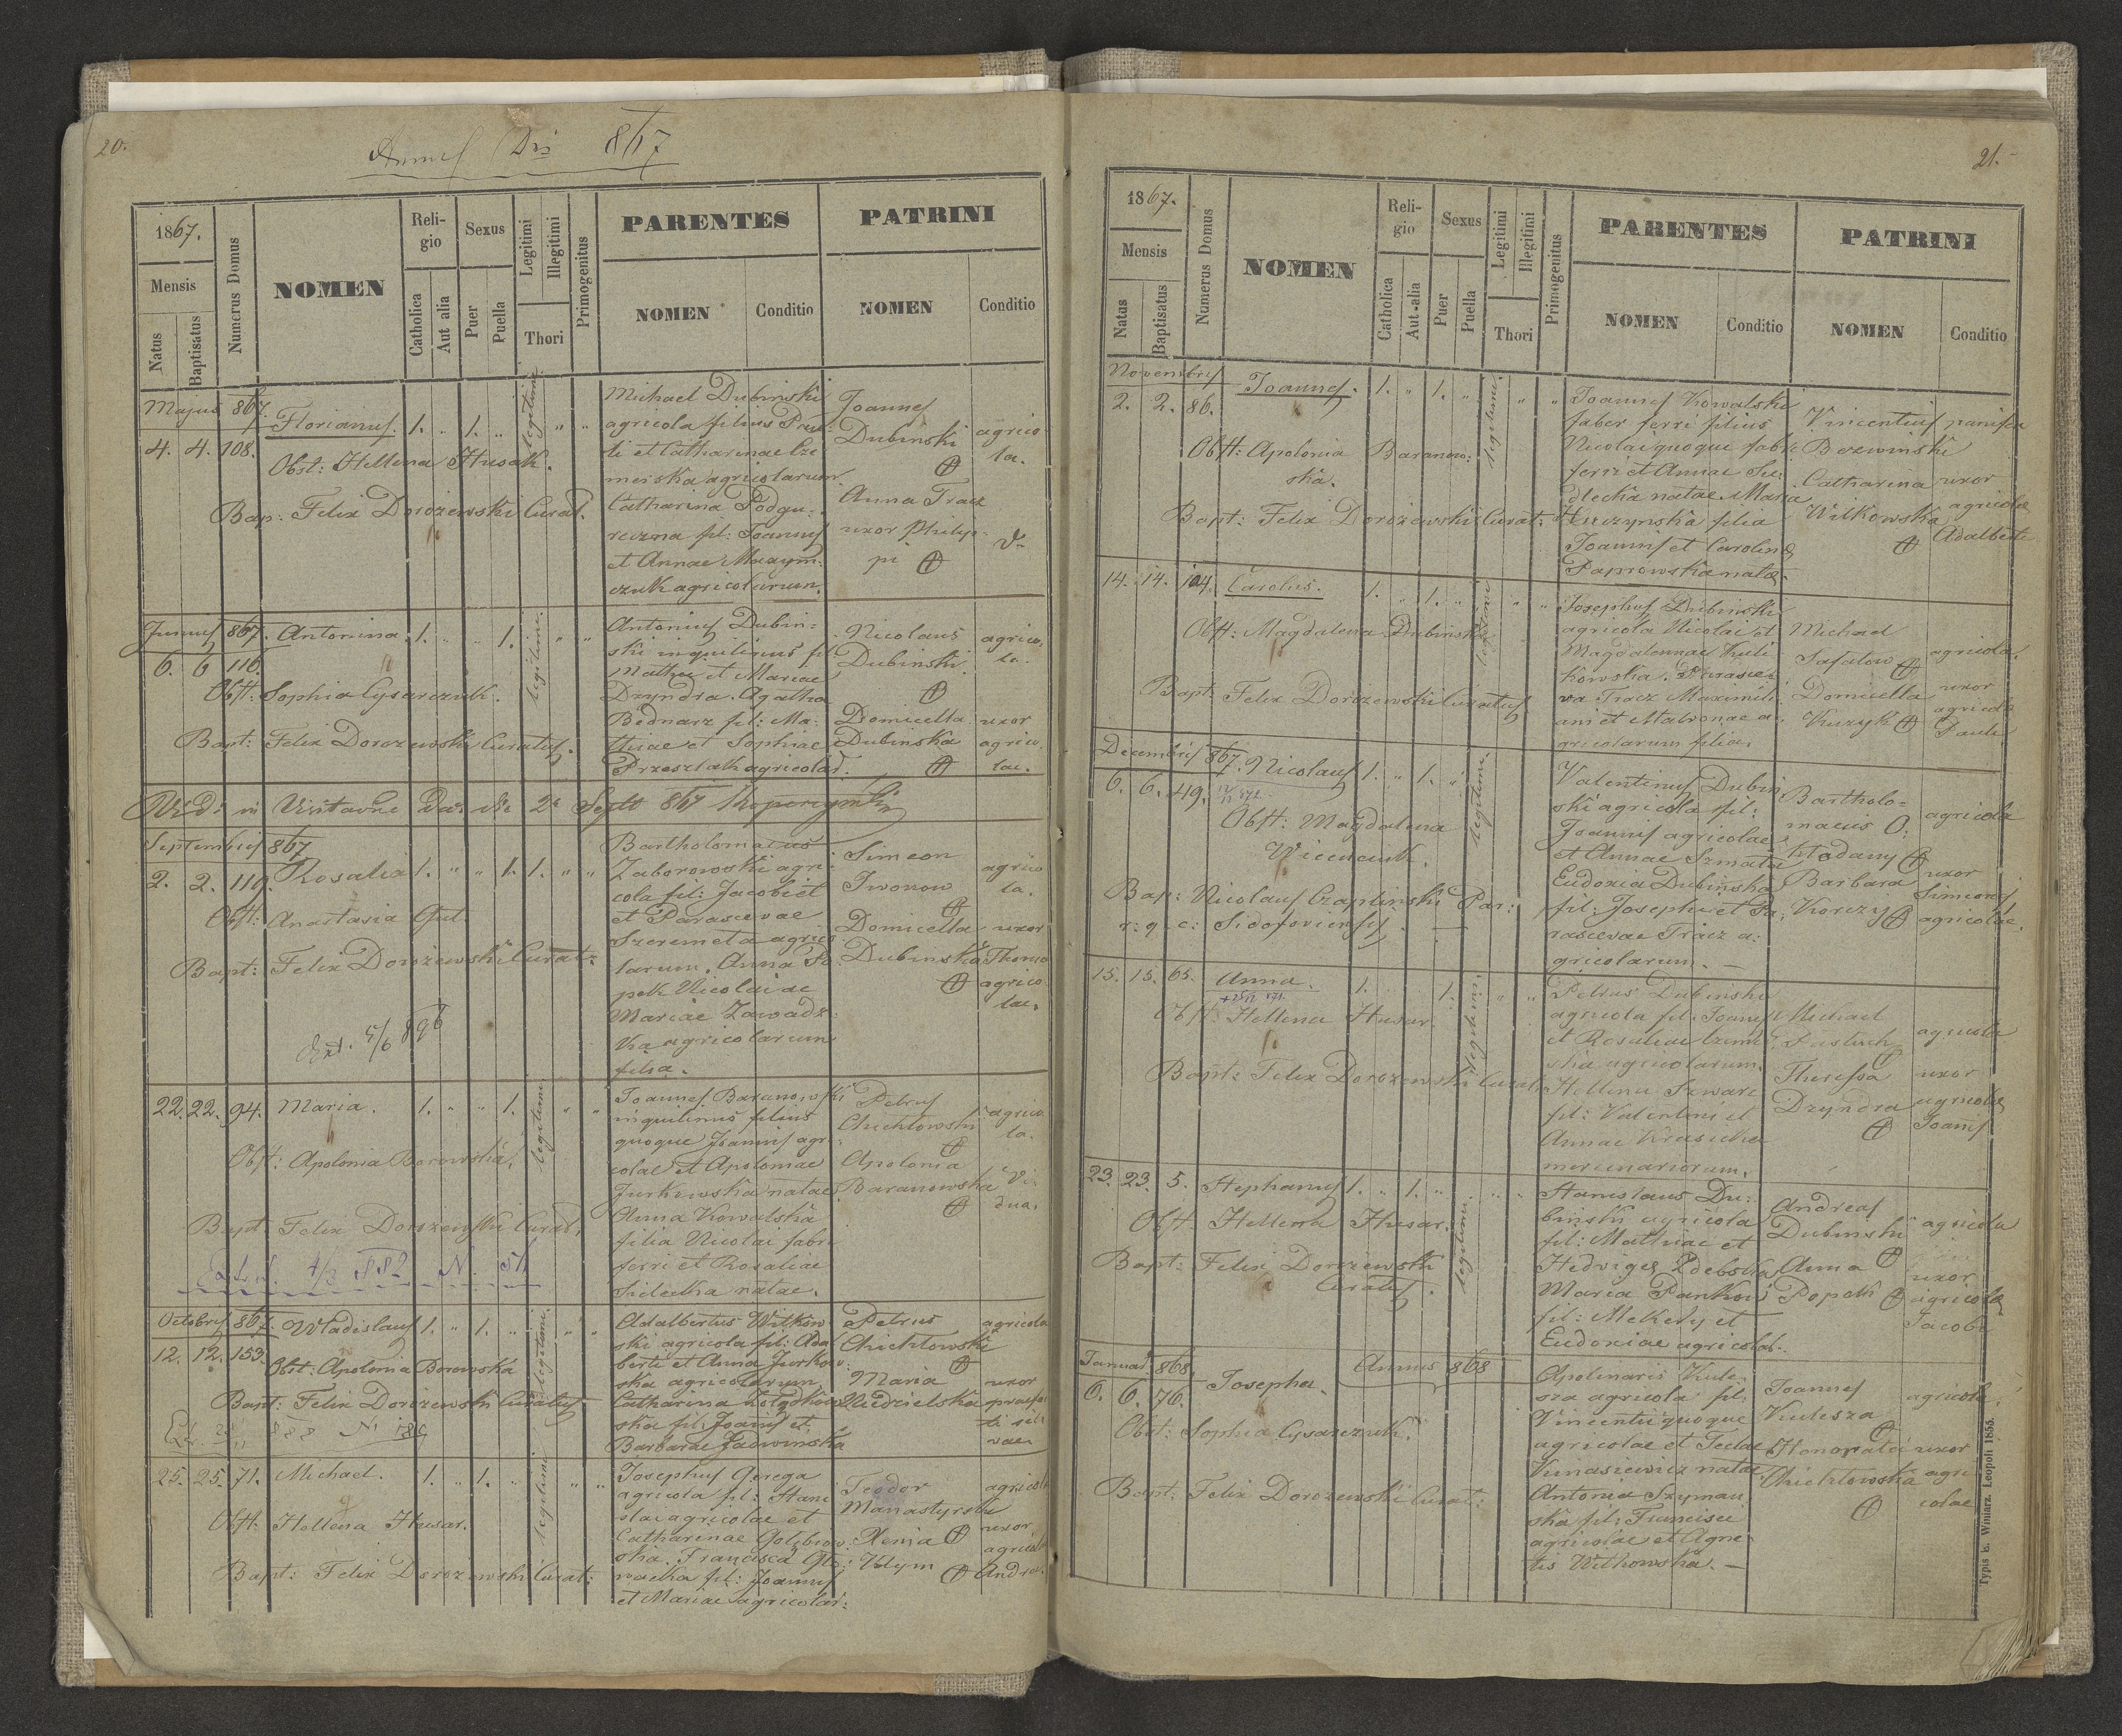 20.
Annus Dni 867
1867.
Mensis
Natus
Baptisatus
Numerus Domus
NOMEN
Religio
Catholica
Aut alia
Sexus
Puer
Puella
Legitimi
Illegitimi
Thori
Primogenitus
PARENTES
NOMEN
Conditio
PATRINI
NOMEN
Conditio
Majus 867.
4. 4. 108.
Florianus. 1. " 1. " legitimi " "
Obst: Hellena Husak.
Bap: Felix Dorożewski Curat.
Michael Dubinski
agricola filius Pau:
li et Catharinae Cze
meiska agricolarum
Catharina Podgu:
reczna fil: Joannis
et Annae Maxym:
czuk agricolarum.
Joannes
Dubinski
agrico
la.
Anna Tracz
uxor Philip:
pi
Junius 867.
6. 6 116.
Antonina. 1. " " 1. legitimi " "
Obst: Sophia Cysarczuk.
Bapt: Felix Dorożewski Curatus.
Antonius Dubin:
ski inquilinus fil
Mathei et Mariae
Dzyndra. Agatha
Bednarz fil: Ma:
thiae et Sophiae
Przeszlak agricolar.
Nicolaus
Dubinski
agrico,
la.
Domicella
Dubinska
uxor
agrico,
lae.
Septembris 867
2. 2. 119.
Rosalia 1. " " 1. 1. " "
Obst: Anastasia Gut.
Bapt: Felix Dorożewski Curat:
Ext. 5/6 896
Bartholomaeus
Zaborowski agri
cola fil: Jacobi et
et Parascevae
Szeremeta agrico
larum. Anna Po:
pek Nicolai ac
Mariae Zawadz:
ka agricolarum
filia.
Simeon
Iwonow
agrico
la.
Domicella
Dubinska
uxor
Thoma
agrico
lae.
22. 22. 94.
Maria. 1. " " 1. legitimi " "
Obst: Apolonia Borowska.
Bapt: Felix Dorożewski Curat.
Joannes Baranowski
inquilinus filius
quoque Joannis agri:
colae et Apoloniae
Jurkowska natae
Anna Kowalska
filia Nicolai fabri
ferri et Rosaliae
Sidecka natae.
Petrus
Chichlowski
agrico
la.
Apolonia
Baranowska
vi:
dua.
Octobris 867.
12. 12. 153.
Wladislaus 1. " 1. " legitimi " "
Obst: Apolonia Borowska
Bapt: Felix Dorożewski Curatus
Adalbertus Witkow
ski agricola fil: Adal
berti et Anna Jurkow:
ska agricolarum
Catharina
ska fil: Joannis et
Barbarae Jadwinska
Petrus
Chichlowski
agricola
Maria
Niedzielska
uxor
25. 25. 71.
Michael. 1. " 1. " legitimi " "
Obst. Hellena Husar.
Bapt: Felix Dorożewski Curat:
Josephus Gerega
agricola fil: Stani
slai agricolae et
Catharinae
ska. Francisca
fil: Joannis
et Mariae agricolar:
Teodor
Manastyrski
agricola
Xenia
Klym
uxor
agricol
Andr
21.
1867.
Mensis
Natus
Baptisatus
Numerus Domus
NOMEN
Religio
Catholica
Aut alia
Sexus
Puer
Puella
Legitimi
Illegitimi
Thori
Primogenitus
PARENTES
NOMEN
Conditio
PATRINI
NOMEN
Conditio
Novembris
2. 2. 86.
Joannes. 1. " 1. " legitimi " "
Obst: Apolonia Baranow:
ska.
Bapt: Felix Dorożewski Curat:
Joannes Kowalski
faber ferri filius
Nicolai quoque fabr:
ferri et Annae Sie:
dlecka natae. Maria
Huczynska filia
Joannis et Carolina
Paprowska natae.
Vincentius
Berewinski
Catharina
Witkowska
uxor
agricolae
Adalberti
14. 14. 104.
Carolus. 1. " 1. " legitimi " "
Obst: Magdalena Dubinska
Bapt: Felix Dorożewski Curatus
Josephus Dubinski
agricola Nicolai et
Magdalennae Kuli
kowska. Parasce:
va Tracz Maximili
ani et Matronae a:
gricolarum filia.
Michael
Safatow
agricola.
Domicella
Kuzyk
uxor
agricolae
Pauli
Decembris 867.
6. 6. 49.
Nicolaus 1. " 1. " legitimi.
Obst: Magdalena
Bap: Nicolaus Czaplinski Par:
r: g: c: Sidoroviensis
Valentinus Dubin
ski agricola fil:
Joannis agricolae
et Annae Szmata
Eudoxia Dubinska
fil: Josephi et Pa:
rascevae Tracz a:
gricolarum. —
Bartholo=
maeus O:
Kladany
agricola
Barbara
Korczy
uxor
Simeonis
agricolae.
15. 15. 65.
Anna. 1. 1. legitimi " "
Obst: Hellena Husar
Bapt: Felix Dorożewski Curat:
Petrus Dubinski
agricola fil. Joannis
et Rosaliae
ska agricolarum.
Hellena Szwarc
fil: Valentini et
Annae Krasicka
mercenariorum.
Michael
Pastuch
agricola
Theressa
Dzyndra
uxor
agricolae
Joannis
23. 23. 5.
Stephanus 1. " 1. " legitimi " "
Obst. Hellena Husar.
Bapt: Felix Dorożewski
Curatus.
Stanislaus Du:
binski agricola
fil: Mathiae et
Hedviges Zdebska
Maria Pankow
fil: Mekety et
Eudoxiae agricolar:
Andreas
Dubinski
agricola
Anna
Popek
uxor
agricolae
Jacobi
Januar: 868
Annus 868
6. 6. 76.
Josepha.
Obst: Sophia Cysarczuk.
Bapt: Felix Dorożewski Curat:
Apolinaris Kule:
sza agricola fil.
Vincentii quoque
agricolae et Teclae
Kunasiewicz natae
Antonia Szyman
ska fil: Francisci
agricolae et Agne:
tis Witkowska. —
Joannes
Kulesza
agricola
Honorata
Chichlowska
uxor
agri
colae
Typis E. Winiarz. Leopoli 1855.